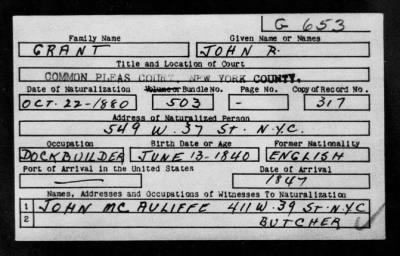 G 653
Family Name Given Name or Names
GRANT JOHN R.
Title and Location of Court
COMMON PLEAS COURT, NEW YORK COUNTY.
Date of Naturalization Volume or Bundle No. Page No. Copy of Record No.
OCT. 22-1880 503 - 317
Address of Naturalized Person
549 W. 37 ST. N.Y.C.
Occupation Birth Date or Age Former Nationality
DOCKBUILDER JUNE 13-1840 ENGLISH
Port of Arrival in the United States Date of Arrival
1847
Names, Addresses and Occupations of Witnesses To Naturalization
1 JOHN MC AULIFFE 411 W. 39 ST. N.Y.C
2 BUTCHER